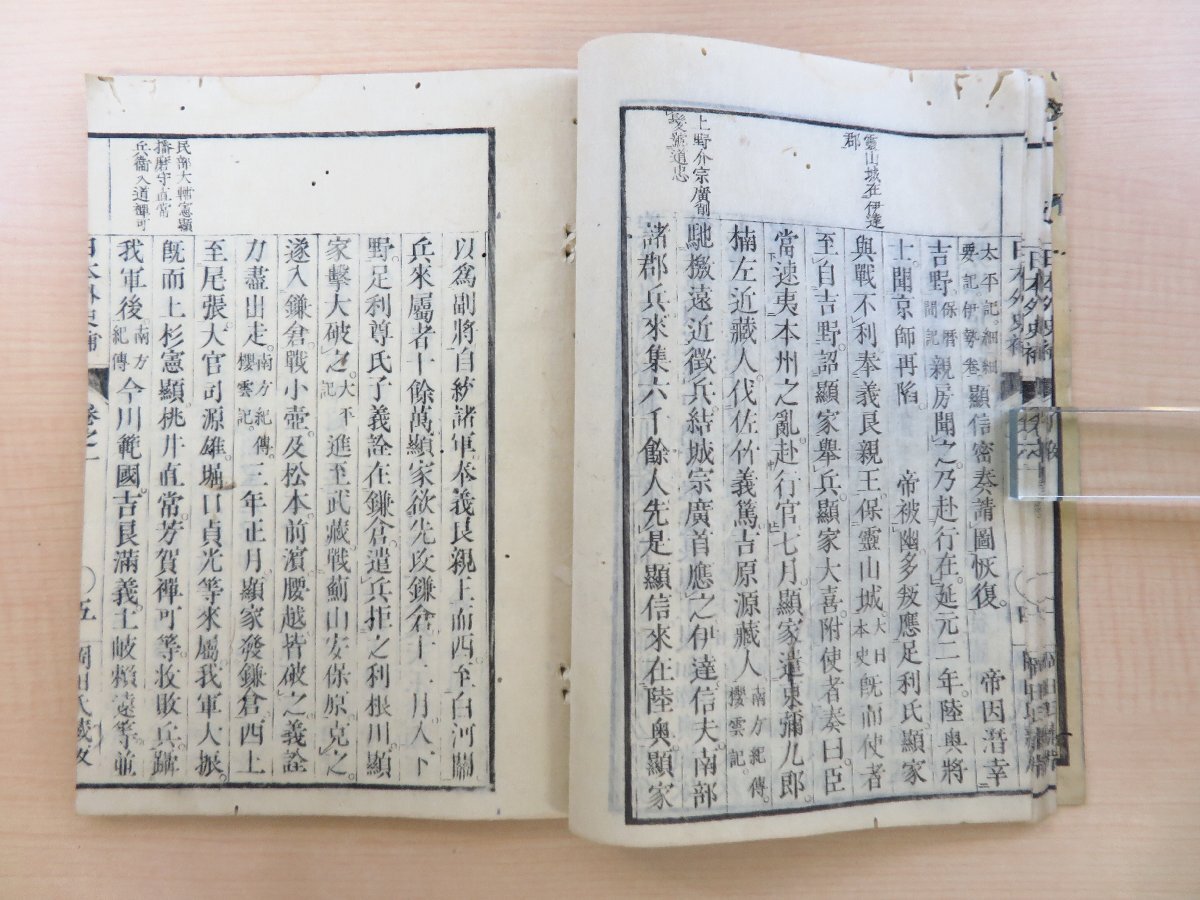 靈山城在伊達
郡
上野介宗廣削
髮號道忠
太平記。細細
要記伊勢卷
顯信密奏請圖恢復。 帝因潛幸
吉野
保曆
間記
親房聞之乃赴行在。延元二年。陸奧將
士聞京師再陷。 帝被幽多叛應足利氏顯家
與戰不利奉義良親王。保靈山城
大日
本史
既而使者
至自吉野詔顯家舉兵。顯家大喜。附使者奏曰。臣
當速夷本州之亂赴行宮七月。顯家遣東彌九郎
楠左近藏人伐佐竹義篤。吉原源藏人
南方紀傳。
櫻雲記。
馳檄遠近徵兵結城宗廣首應之伊達。信夫。南部
諸郡兵來集六千餘人先是顯信來在陸奧顯家
民部大輔憲顯
播磨守直常
兵衞入道禪可
以爲副將自紗諸軍奉義良親王而西至白河關
兵來屬者十餘萬。顯家欲先攻鎌倉十二月。入下
野。足利尊氏子義詮在鎌倉。遣兵拒之利根川顯
家擊大破之
太平
記
進至武藏。戰薊山安保原。克之
遂入鎌倉。戰小壺。及松本前濱腰越皆破之。義詮
力盡出走。
南方紀傳。
櫻雲記。
三年正月。顯家發鎌倉西上
至尾張。大宮司源雄。堀口貞光等來屬我軍大振。
既而上杉憲顯。桃井直常。芳賀禪可等。收敗兵躡
我軍後
南方
紀傳
今川範國。吉良滿義。土岐賴遠等並
日本外史補 卷之一 〇五 岡田氏藏板